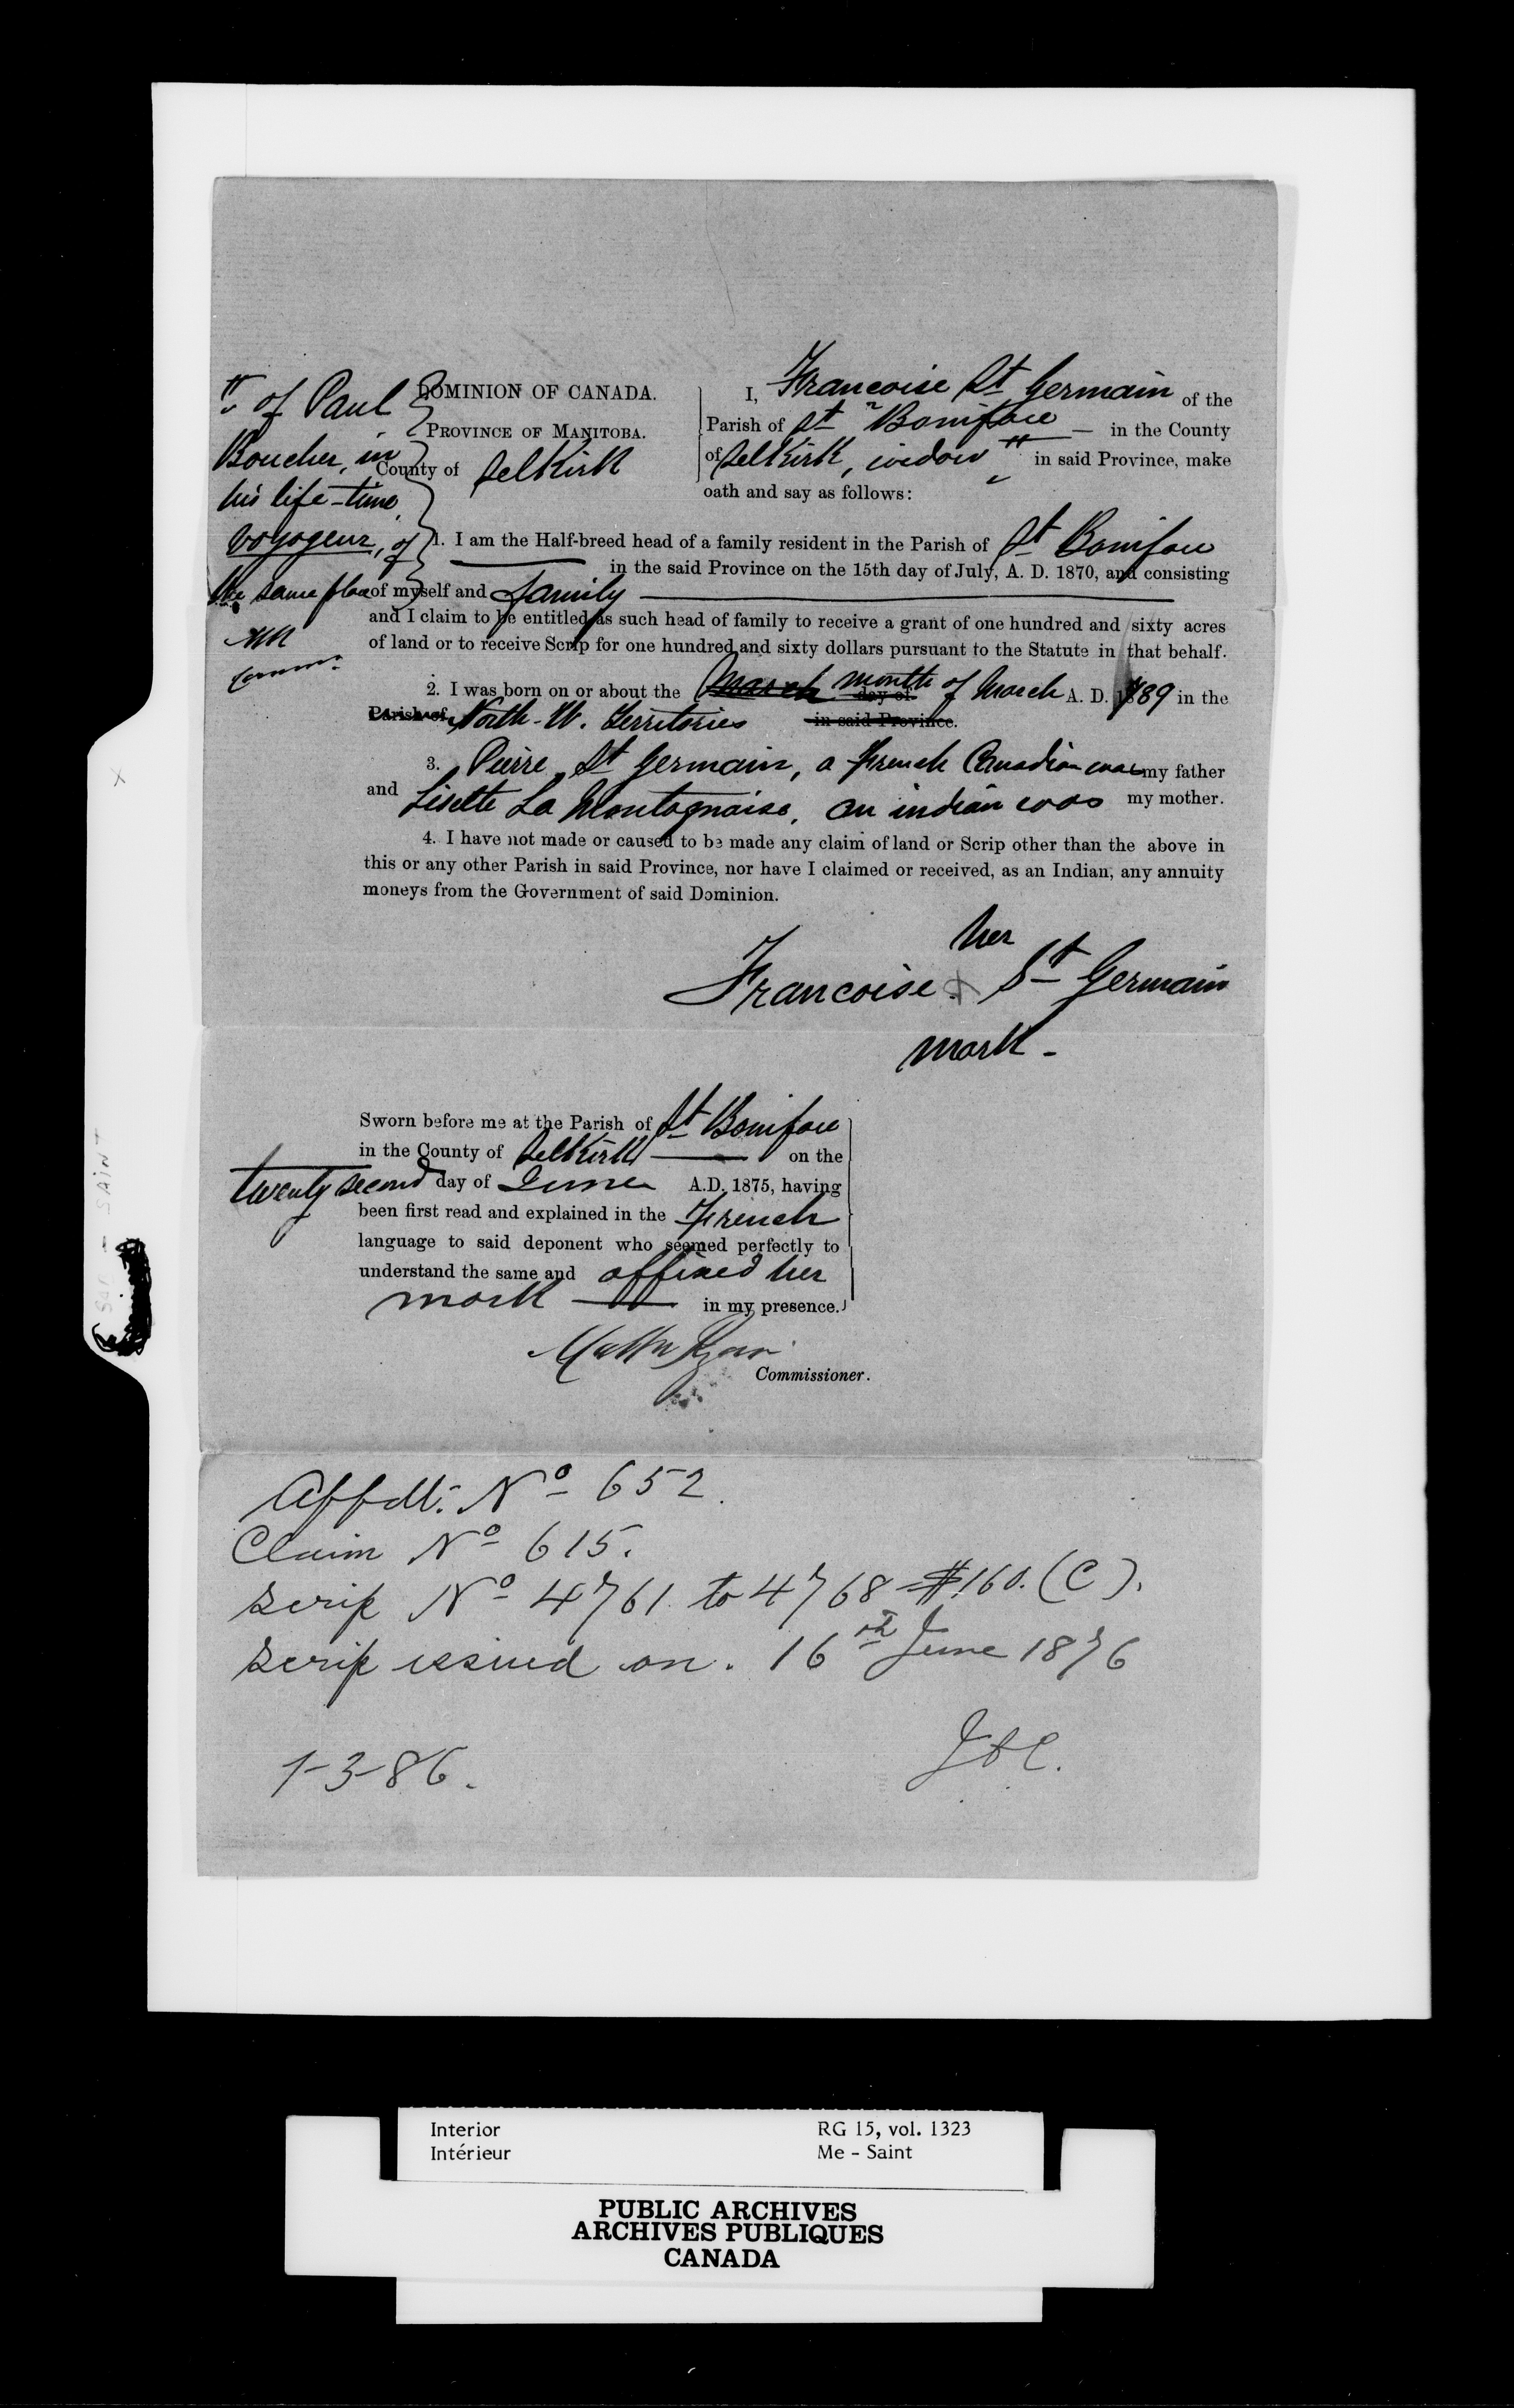 DOMINION OF CANADA.
PROVINCE OF MANITOBA.
County of Selkirk
" of Paul
Boucher, in
his life-time,
voyageur, of
the same place
MR
Comm:
I, Francoise St Germain of the
Parish of St Boniface — in the County
of Selkirk, widow " in said Province, make
oath and say as follows:
1. I am the Half-breed head of a family resident in the Parish of St Boniface
in the said Province on the 15th day of July, A. D. 1870, and consisting
of myself and family
and I claim to be entitled as such head of family to receive a grant of one hundred and sixty acres
of land or to receive Scrip for one hundred and sixty dollars pursuant to the Statute in that behalf.
2. I was born on or about the March month day of of March A. D. 1789 in the
Parish of North-W. Territories in said Province.
3. Pierre St Germain, a French Canadian was my father
and Lisette La Montagnaise, an indian was my mother.
4. I have not made or caused to be made any claim of land or Scrip other than the above in
this or any other Parish in said Province, nor have I claimed or received, as an Indian, any annuity
moneys from the Government of said Dominion.
her
Francoise + St Germain
mark -
Sworn before me at the Parish of St Boniface
in the County of Selkirk on the
twenty second day of June A.D. 1875, having
been first read and explained in the French
language to said deponent who seemed perfectly to
understand the same and affixed her
mark in my presence.
Matthew Ryan
Commissioner.
Affdt: No 652.
Claim No 615.
Scrip No 4761 to 4768 = $160. (C).
Scrip issued on. 16th June 1876
1-3-86.
SAINT
Interior
Intérieur
RG 15, vol. 1323
Me - Saint
PUBLIC ARCHIVES
ARCHIVES PUBLIQUES
CANADA